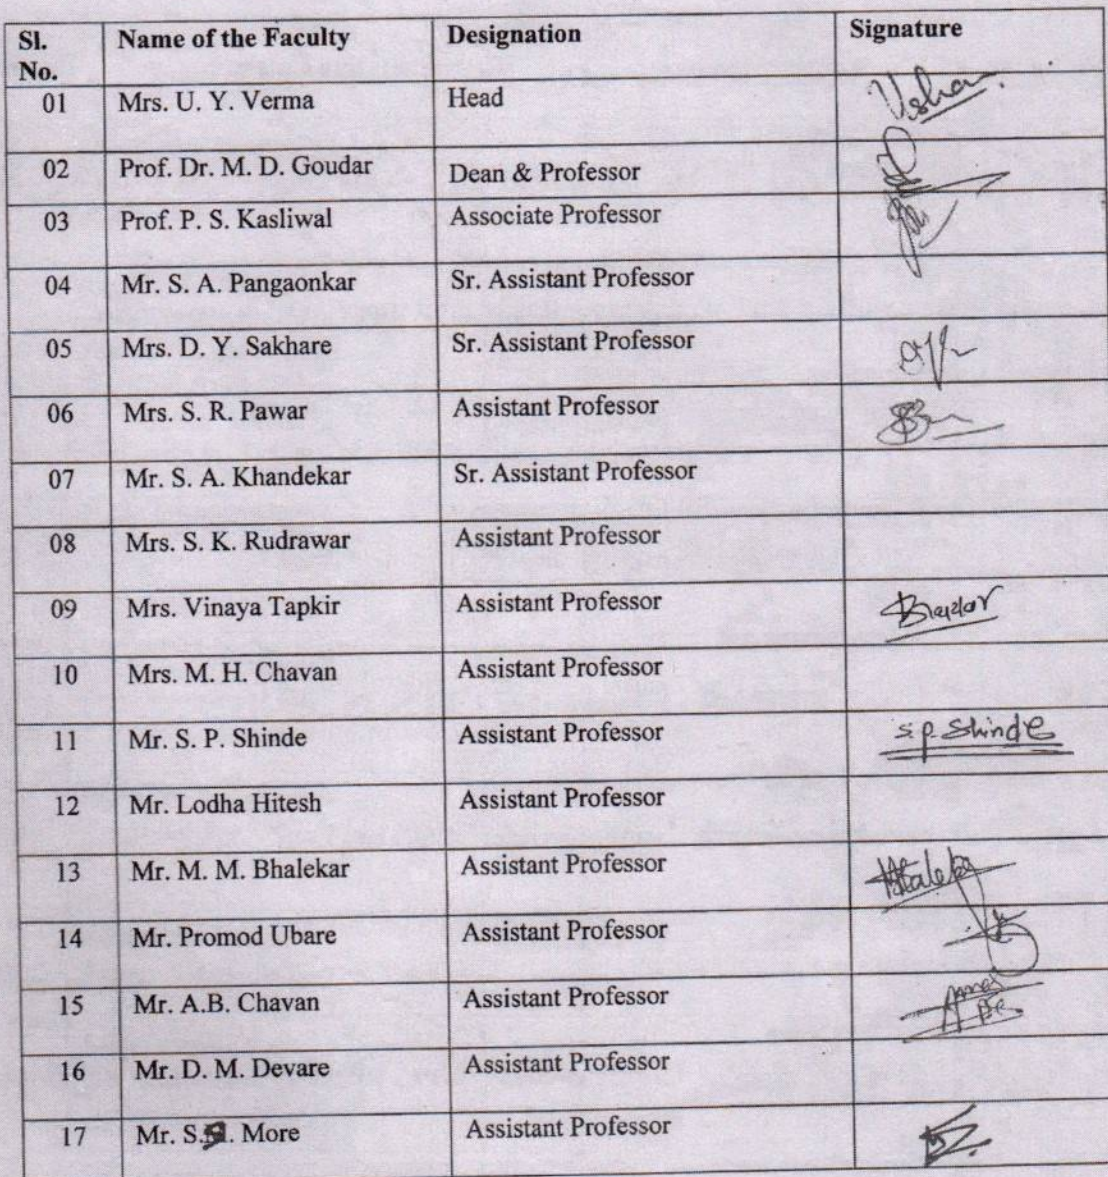 Sl. No. Name of the Faculty Designation Signature
01 Mrs. U. Y. Verma Head
02 Prof. Dr. M. D. Goudar Dean & Professor
03 Prof. P. S. Kasliwal Associate Professor
04 Mr. S. A. Pangaonkar Sr. Assistant Professor
05 Mrs. D. Y. Sakhare Sr. Assistant Professor
06 Mrs. S. R. Pawar Assistant Professor
07 Mr. S. A. Khandekar Sr. Assistant Professor
08 Mrs. S. K. Rudrawar Assistant Professor
09 Mrs. Vinaya Tapkir Assistant Professor
10 Mrs. M. H. Chavan Assistant Professor
11 Mr. S. P. Shinde Assistant Professor S.P. Shinde
12 Mr. Lodha Hitesh Assistant Professor
13 Mr. M. M. Bhalekar Assistant Professor
14 Mr. Promod Ubare Assistant Professor
15 Mr. A.B. Chavan Assistant Professor
16 Mr. D. M. Devare Assistant Professor
17 Mr. More Assistant Professor